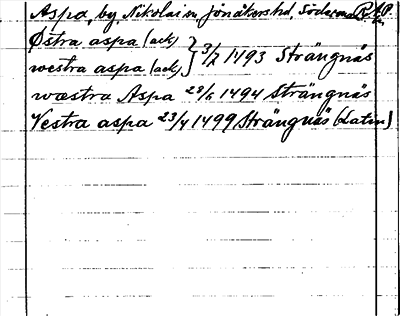 Aspa, by, Nikolai sn, Jönåkers hd, Söderman R.A.P.
Østra aspa (ack)
westra aspa (ack) } 3/2 1493 Strängnäs
wæstra Aspa 28/5 1494 Strängnäs
Vestra aspa 23/4 1499 Strängnäs (Latin)